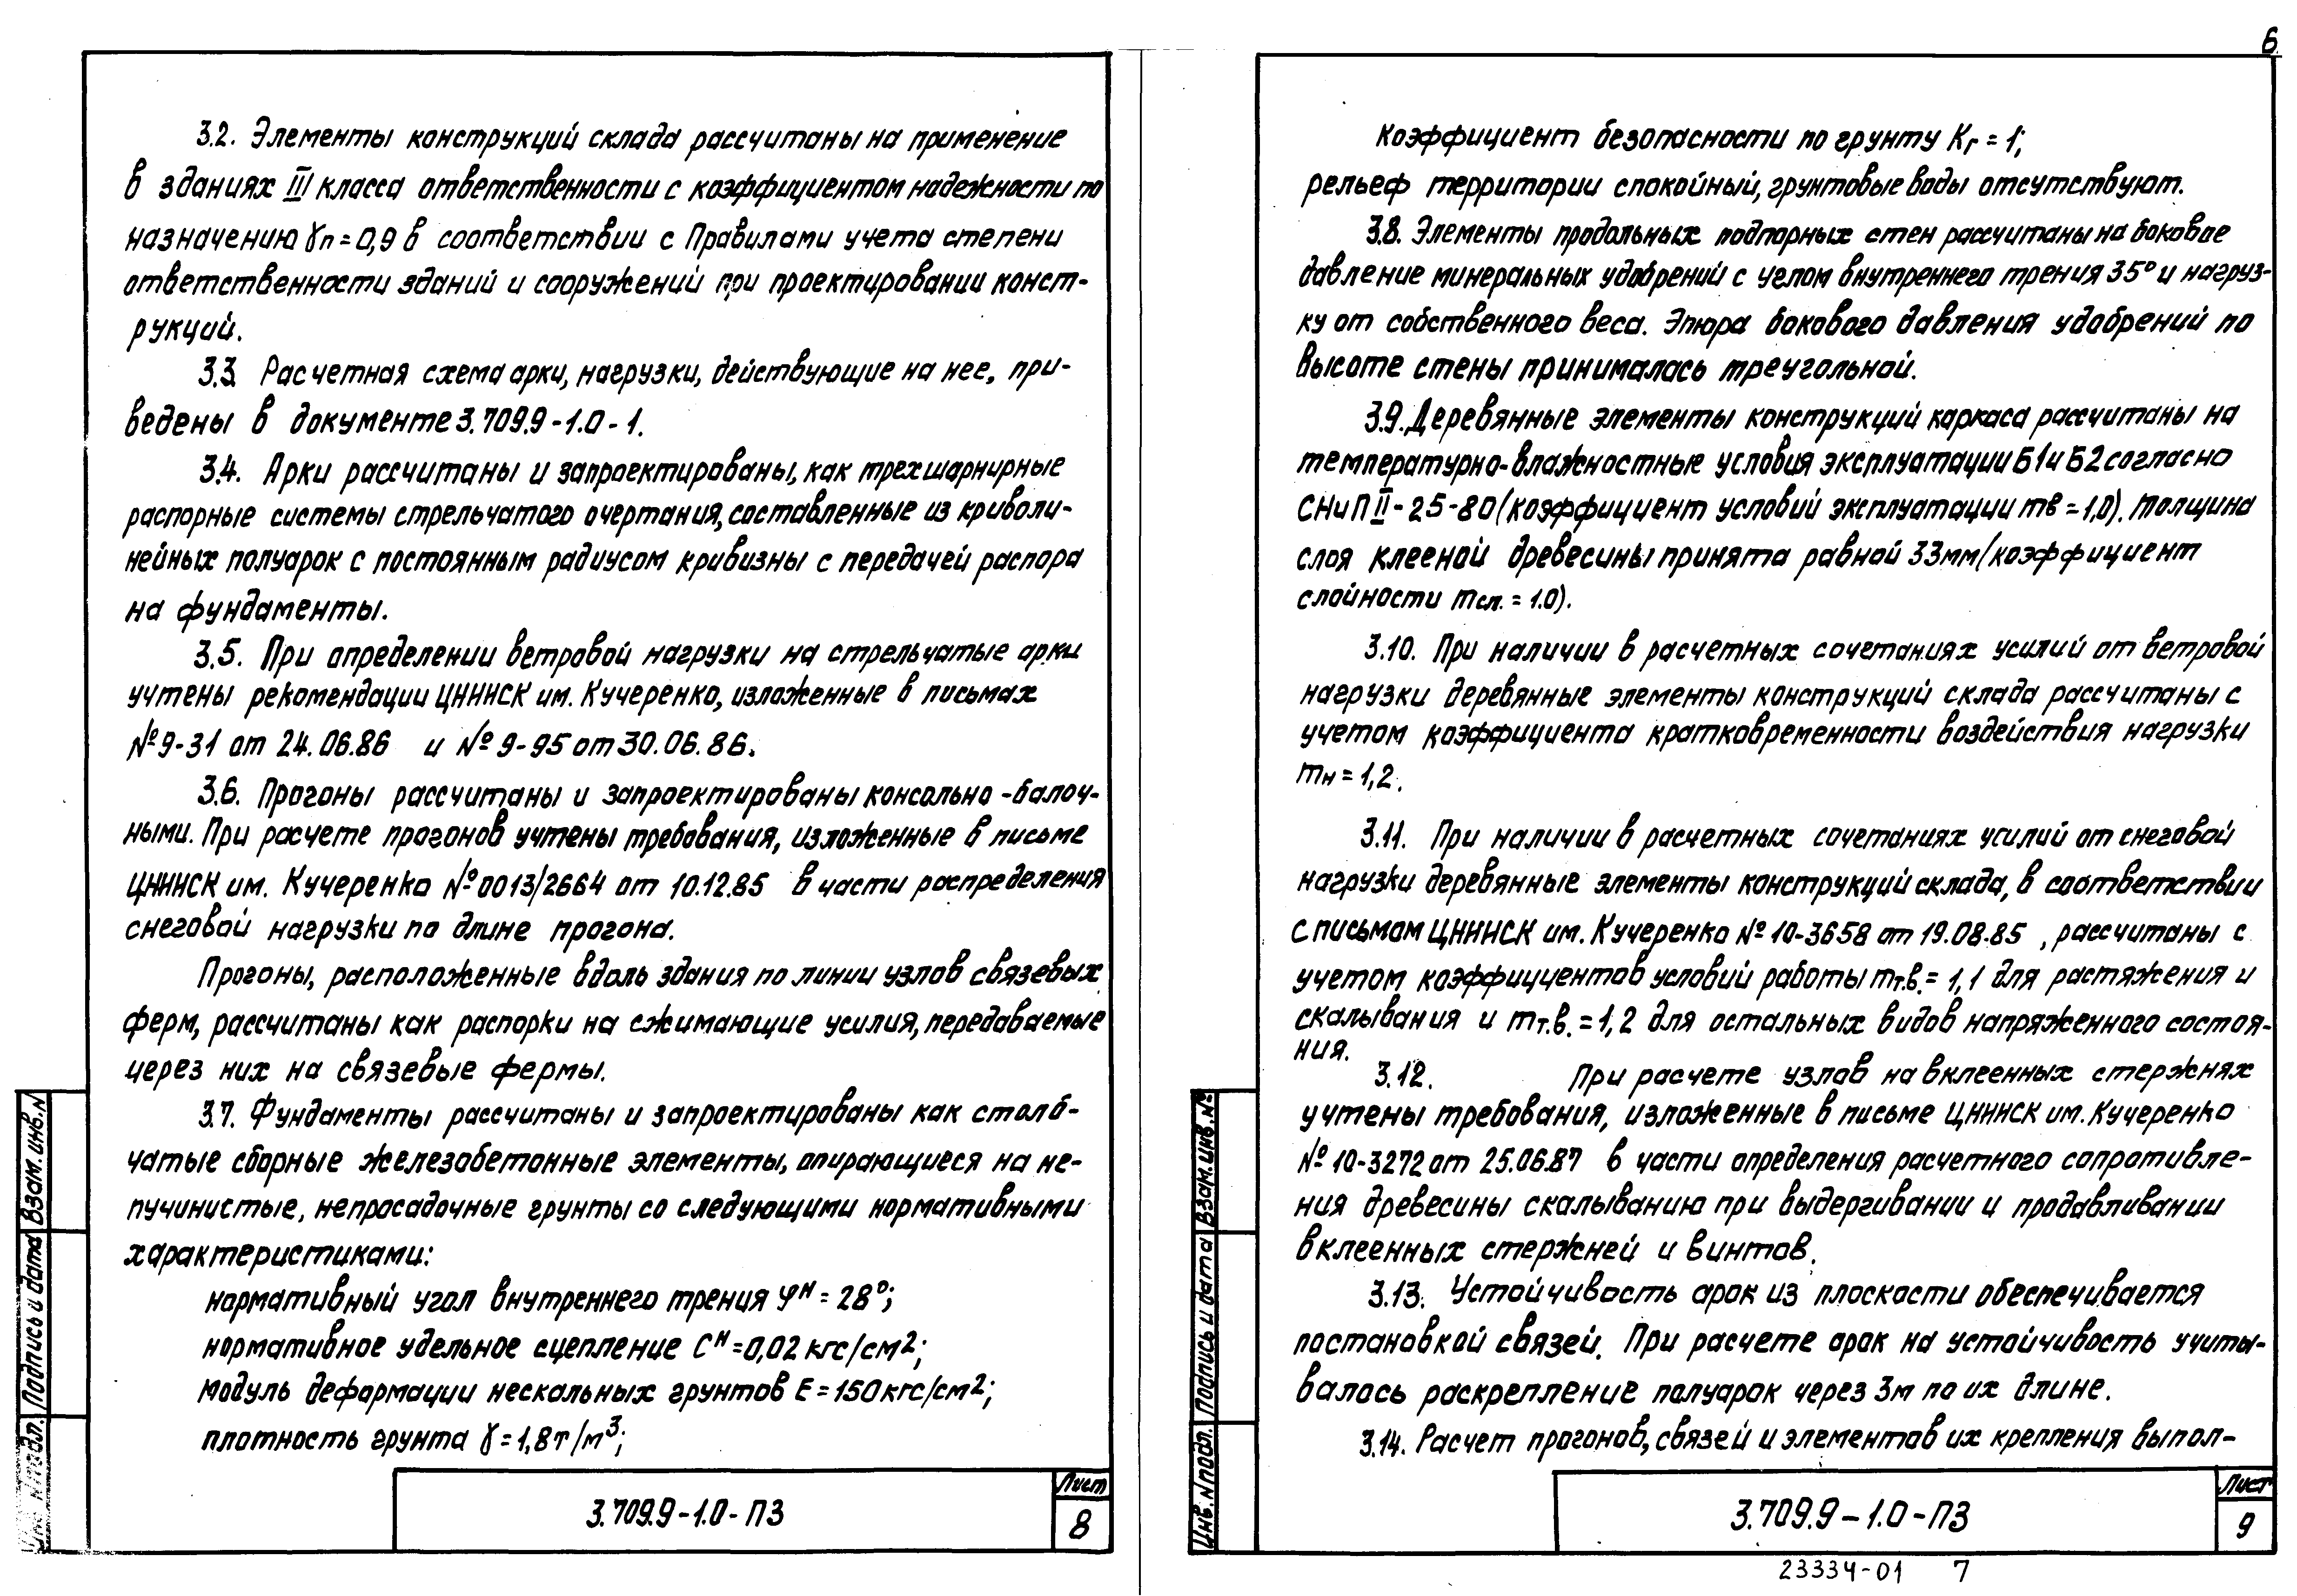 6
3.2. Элементы конструкций склада рассчитаны на применение
в зданиях III класса ответственности с коэффициентом надежности по
назначению γп = 0,9 в соответствии с Правилами учета степени
ответственности зданий и сооружений при проектировании конст-
рукций.
3.3. Расчетная схема арки, нагрузки, действующие на нее, при-
ведены в документе 3.709.9-1.0-1.
3.4. Арки рассчитаны и запроектированы, как трехшарнирные
распорные системы стрельчатого очертания, составленные из криволи-
нейных полуарок с постоянным радиусом кривизны с передачей распора
на фундаменты.
3.5. При определении ветровой нагрузки на стрельчатые арки
учтены рекомендации ЦНИИСК им. Кучеренко, изложенные в письмах
№9-31 от 24.06.86 и №9-95 от 30.06.86.
3.6. Прогоны рассчитаны и запроектированы консольно-балоч-
ными. При расчете прогонов учтены требования, изложенные в письме
ЦНИИСК им. Кучеренко №0013/2664 от 10.12.85 в части распределения
снеговой нагрузки по длине прогона.
Прогоны, расположенные вдоль здания по линии узлов связевых
ферм, рассчитаны как распорки на сжимающие усилия, передаваемые
через них на связевые фермы.
3.7. Фундаменты рассчитаны и запроектированы как столб-
чатые сборные железобетонные элементы, опирающиеся на не-
пучинистые, непросадочные грунты со следующими нормативными
характеристиками:
нормативный угол внутреннего трения φᴴ = 28°;
нормативное удельное сцепление Cᴴ = 0,02 кгс/см²;
модуль деформации нескальных грунтов E = 150 кгс/см²;
плотность грунта γ = 1,8 т/м³;
3.709.9-1.0-ПЗ
Лист
8
Инв. N подл. Подпись и дата Взам. инв. N
Коэффициент безопасности по грунту Kг = 1;
рельеф территории спокойный, грунтовые воды отсутствуют.
3.8. Элементы продольных подпорных стен рассчитаны на боковое
давление минеральных удобрений с углом внутреннего трения 35° и нагруз-
ку от собственного веса. Эпюра бокового давления удобрений по
высоте стены принималась треугольной.
3.9. Деревянные элементы конструкций каркаса рассчитаны на
температурно-влажностные условия эксплуатации Б1 и Б2 согласно
СНиП II-25-80 (коэффициент условий эксплуатации mв = 1,0). Толщина
слоя клееной древесины принята равной 33мм (коэффициент
слойности mсл. = 1.0).
3.10. При наличии в расчетных сочетаниях усилий от ветровой
нагрузки деревянные элементы конструкций склада рассчитаны с
учетом коэффициента кратковременности воздействия нагрузки
mн = 1,2.
3.11. При наличии в расчетных сочетаниях усилий от снеговой
нагрузки деревянные элементы конструкций склада, в соответствии
с письмом ЦНИИСК им. Кучеренко № 10-3658 от 19.08.85 , рассчитаны с
учетом коэффициентов условий работы mт.в. = 1,1 для растяжения и
скалывания и mт.в. = 1,2 для остальных видов напряженного состоя-
ния.
3.12. При расчете узлов на вклеенных стержнях
учтены требования, изложенные в письме ЦНИИСК им. Кучеренко
№ 10-3272 от 25.06.87 в части определения расчетного сопротивле-
ния древесины скалыванию при выдергивании и продавливании
вклеенных стержней и винтов.
3.13. Устойчивость арок из плоскости обеспечивается
постановкой связей. При расчете арок на устойчивость учиты-
валось раскрепление полуарок через 3м по их длине.
3.14. Расчет прогонов, связей и элементов их крепления выпол-
3.709.9-1.0-ПЗ
Лист
9
Инв. N подл. Подпись и дата Взам. инв. №
23334-01 7